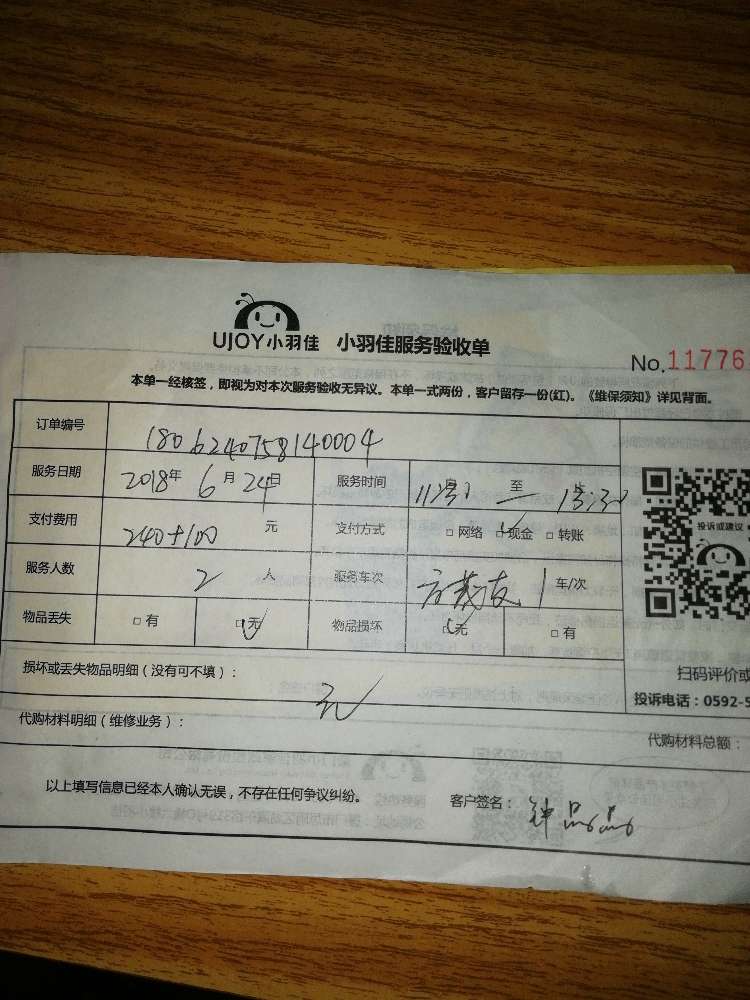 UJOY小羽佳 小羽佳服务验收单
No.11776
本单一经核签,即视为对本次服务验收无异议。本单一式两份,客户留存一份(红)。《维保须知》详见背面。
订单编号 1806240758140004
服务日期 2018年 6月 24日 服务时间 至
支付费用 240+100 元 支付方式 □网络 □现金 □转账
投诉或建议
服务人数 2 人 服务车次 1 车/次
物品丢失 □有 □无 物品损坏 □无 □有
损坏或丢失物品明细(没有可不填): 无
扫码评价或
投诉电话:0592-5
代购材料明细(维修业务): 代购材料总额:
以上填写信息已经本人确认无误,不存在任何争议纠纷。 客户签名: 钟晶晶